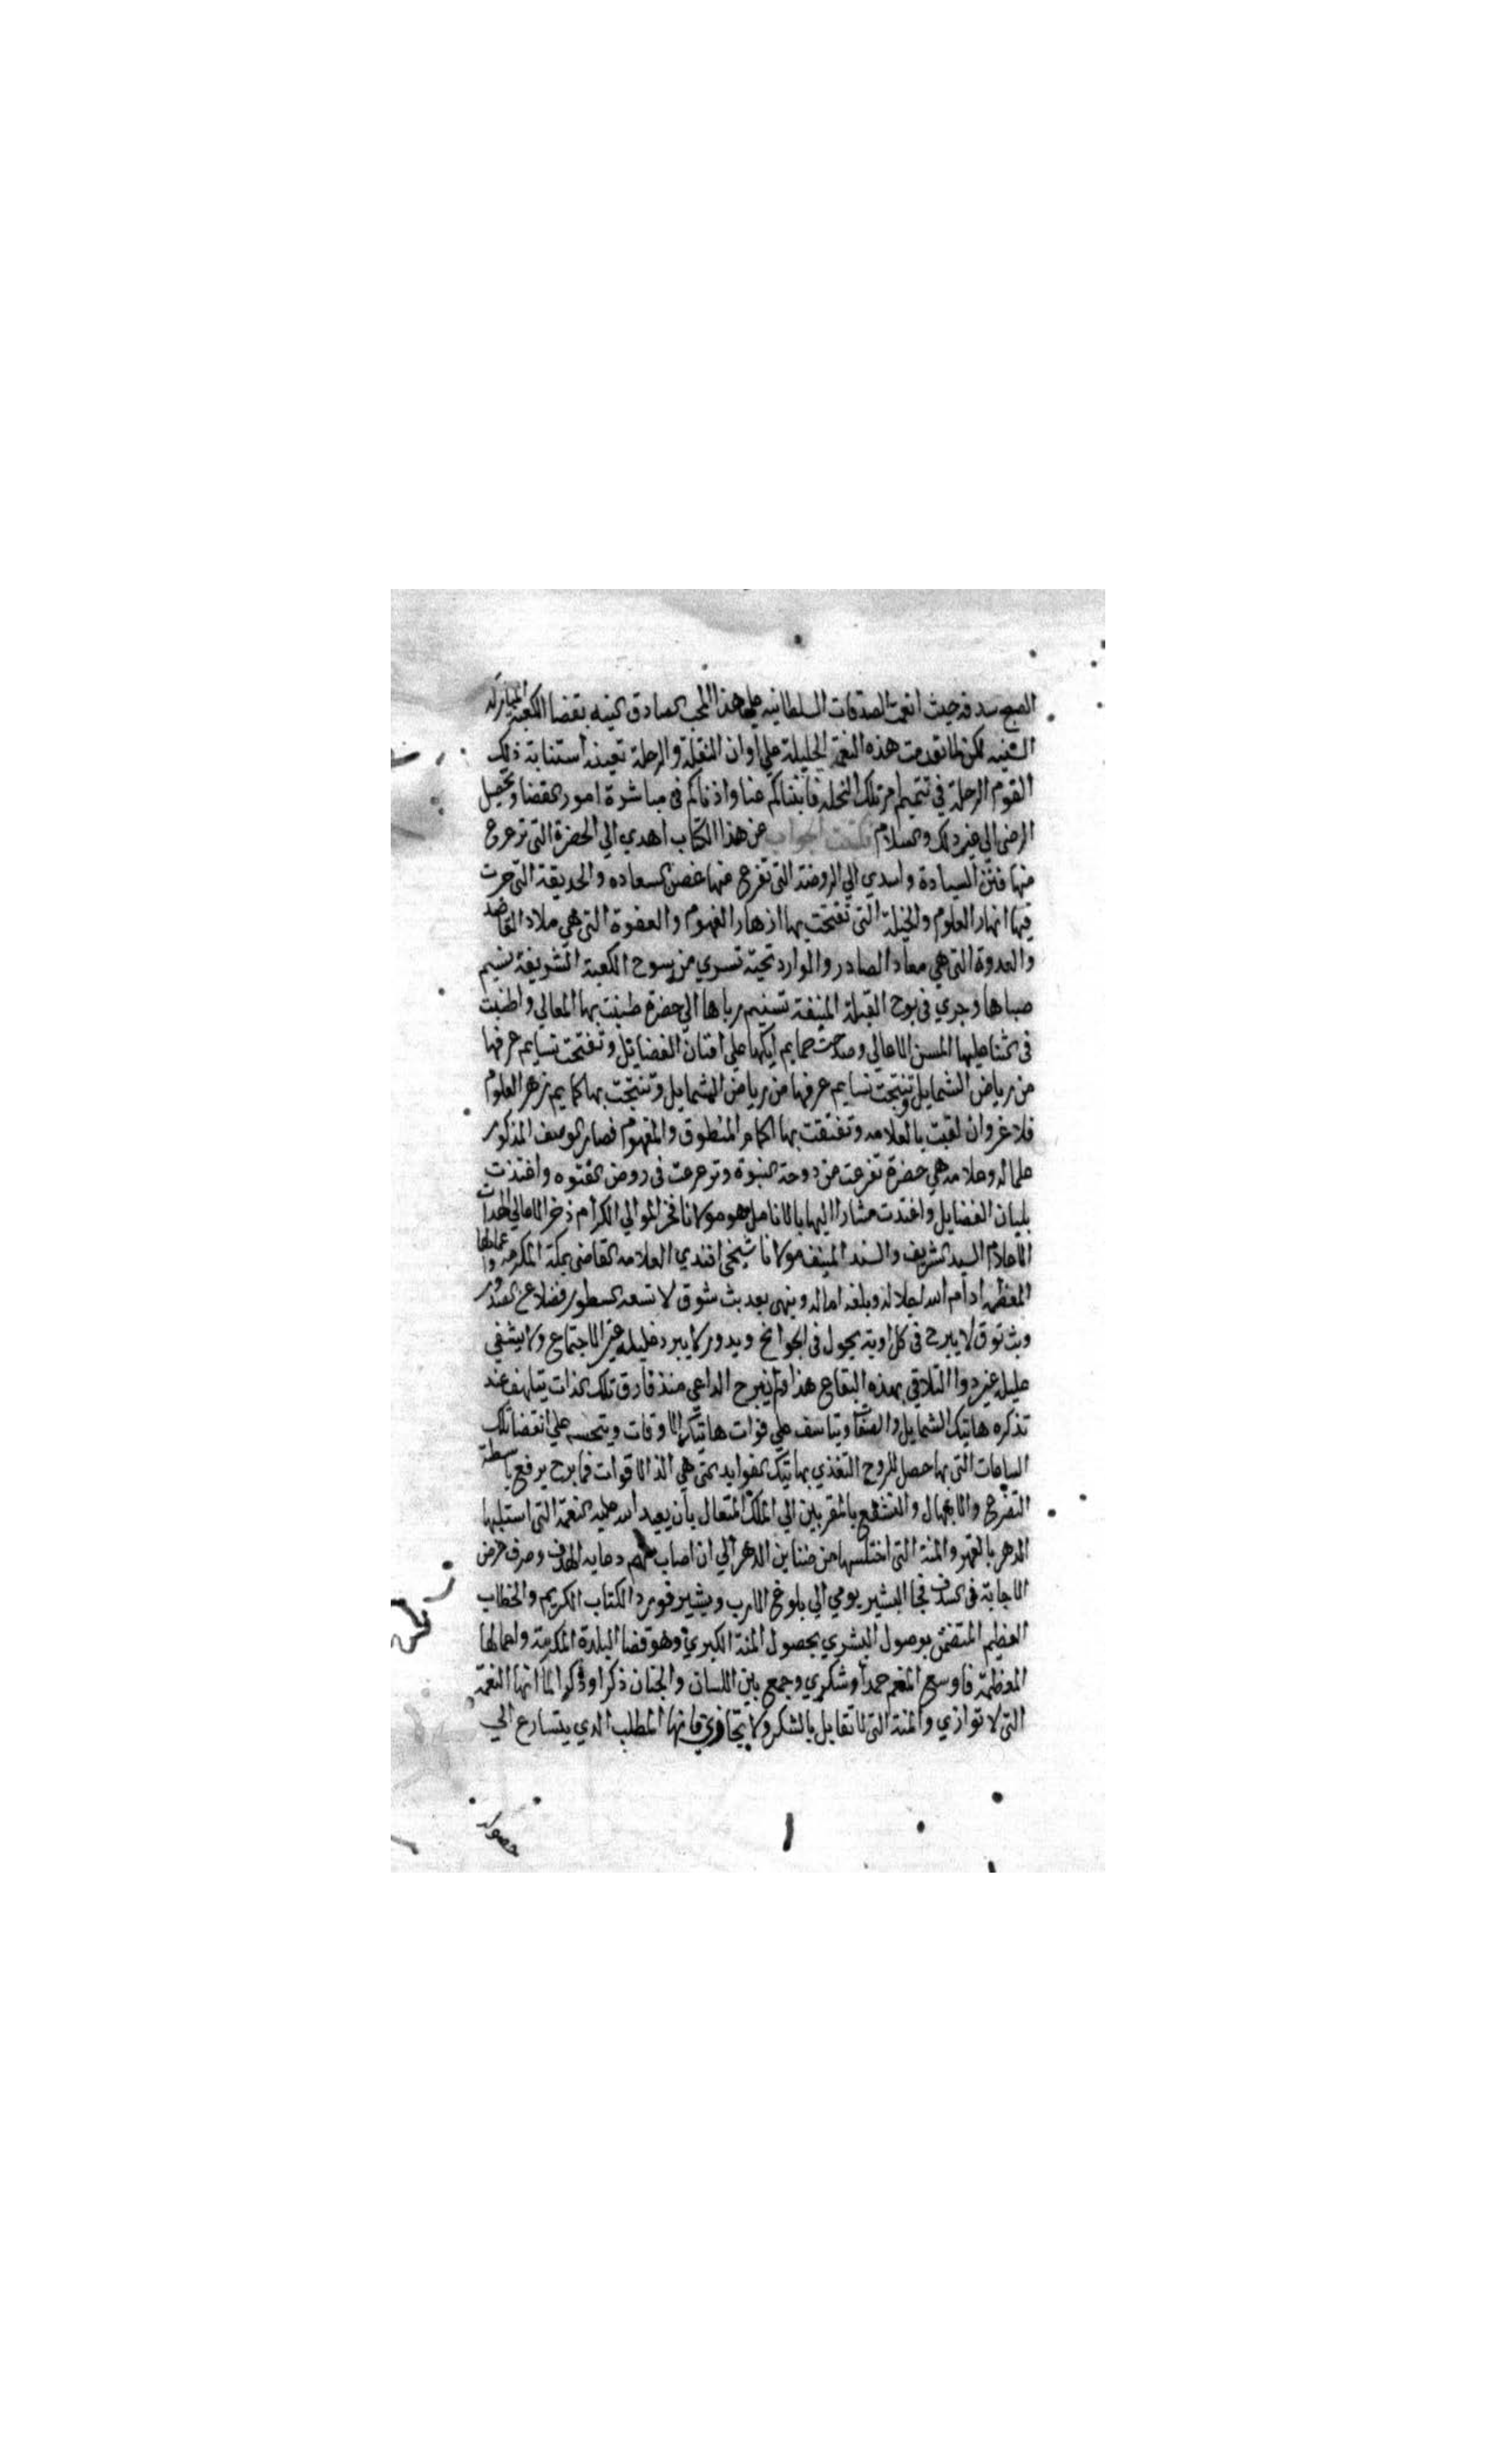 الصبح سدفه حيث انعمت الصدقات السلطانيه على هذا المحب الصادق النيه بقضا الكعبة المباركه
السنيه لكن لما تقدمت هذه النعمة الجليلة علي اوان النقلة والرحلة تعينه استنابة ذلك
القوم الرحلة في تتميم امر تلك النحله فانبناكم عنا واذناكم في مباشرة امور القضا وتحصيل
الرضى الي غير ذلك والسلام فكتبت الجواب عن هذا الكتاب اهدي الي الحضرة التي ترعرع
منها فنن السيادة واسدي الي الروضة التي تفرع منها غصن السعاده والحديقة التي جرت
فيها انهار العلوم والخيلة التي تفتحت بها ازهار الفهوم والعفوة التي هي ملاد القاصد
والعدوة التي هي معاد الصادر والوارد تحية تسري من سوح الكعبة الشريفة نسيم
صباها وجري في بوح القبلة المنيفة تسنيم رباها الي حضرة طنبت بها المعالي واطنبت
في الثنا عليها السن الاعالي وصدحت حمايم ايكها علي افنان الفضائل وتفتحت نسايم عرفها
من رياض الشمايل وتنتجت نسايم عرفها من رياض الشمايل وتنتجت بها كمايم زهر العلوم
فلا غروان لقبت بالعلامه وتفتقت بها اكمام المنطوق والمفهوم فصار الوصف المذكور
علما له وعلامه هي حضرة تفرعت من دوحة النبوة وترعرعت في روض الفتوه واغتذت
بلبان الفضايل واغتدت مشارا اليها بالانامل هو مولانا فخر الموالي الكرام ذخر الاهالي
الاعلام السيد الشريف والسند المنيف مولانا شيخي افندي العلامه القاضي بمكة المكرمه واعمالها
المعظمه ادام الله اجلاله وبلغه اماله وينهي بعد بث شوق لا تسعه السطور فضلا عن الصدور
وبث توق لا يبرح في كل اوية يجول في الجوانح ويدور لا يبرد غليله غير الاجتماع ولا يشفي
عليله غير دوا التلاقي بهذه البقاع هذا ولم يبرح الداعي منذ فارق تلك الذات يتلهف عند
تذكره هاتيك الشمايل والصفات ويتاسف علي فوات هاتيك الاوقات ويتحسر علي انقضا تلك
الساعات التي بها حصل للروح التغذي بهاتيك الفوايد التي هي الذ الاقوات فما برح يرفع باسطة
التضرع والابتهال والتشفع بالمقربين الي الملك المتعال بان يعيد الله عليه النعمة التي استلبها
الدهر بالقهر والمنة التي اختلسها من ضناين الدهر الي ان اصاب سهم دعايه الهدف وصرف عرض
الاجابة في السدف فجا البشير يومي الي بلوغ الارب ويشير فورد الكتاب الكريم والخطاب
العظيم المتضمن بوصول البشري بحصول المنة الكبري وهو قضا البلدة المكرمة واعمالها
المعظمة فاوسع المنعم حمدا وشكري وجمع بين اللسان والجنان ذكرا وفكرا لما انها النعمة
التي لا توازي والمنة التي لا تقابل بالشكر ولا تجازي فانها المطلب الدي يتسارع الي
حصوله